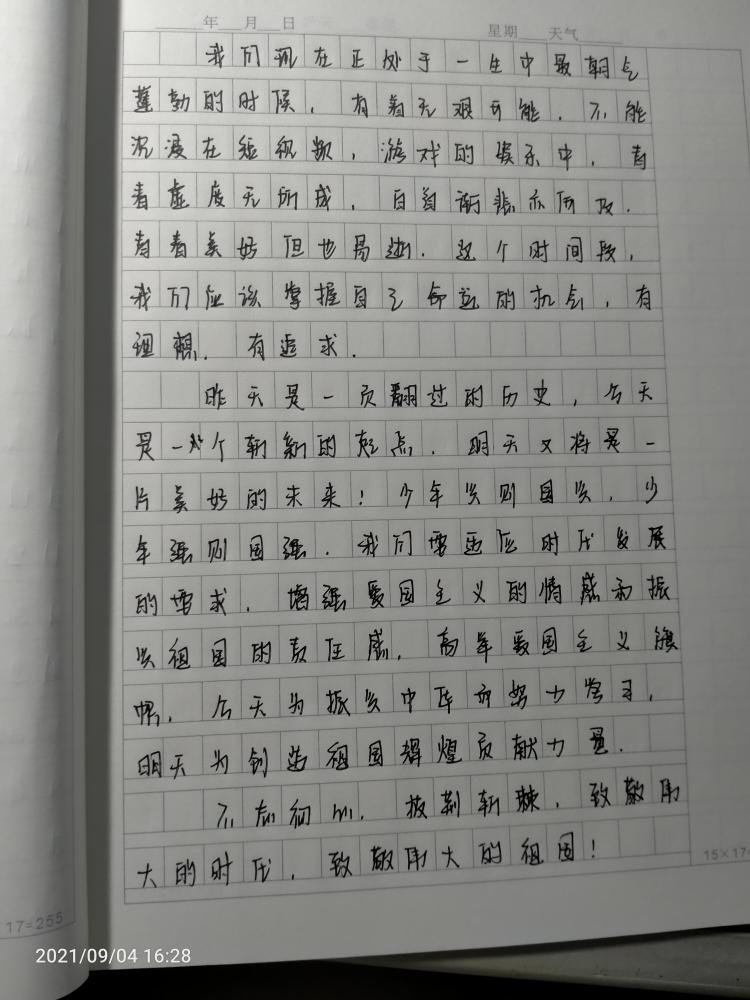 年 月 日
星期 天气
我们现在正处于一生中最朝气
蓬勃的时候，有着无限可能，不能
沉浸在短视频，游戏的娱乐中，青
春虚度无所成，白首衔悲亦何及．
青春美好但也易逝．这个时间段，
我们应该掌握自己命运的机会，有
理想，有追求．
昨天是一页翻过的历史，今天
是一个崭新的起点．明天又将是一
片美好的未来！少年兴则国兴，少
年强则国强．我们要适应时代发展
的要求，增强爱国主义的情感和振
兴祖国的责任感，高举爱国主义旗
帜，今天为振兴中华而努力学习，
明天为创造祖国辉煌贡献力量．
不忘初心，披荆斩棘，致敬伟
大的时代，致敬伟大的祖国！
15×17
17=255
2021/09/04 16:28